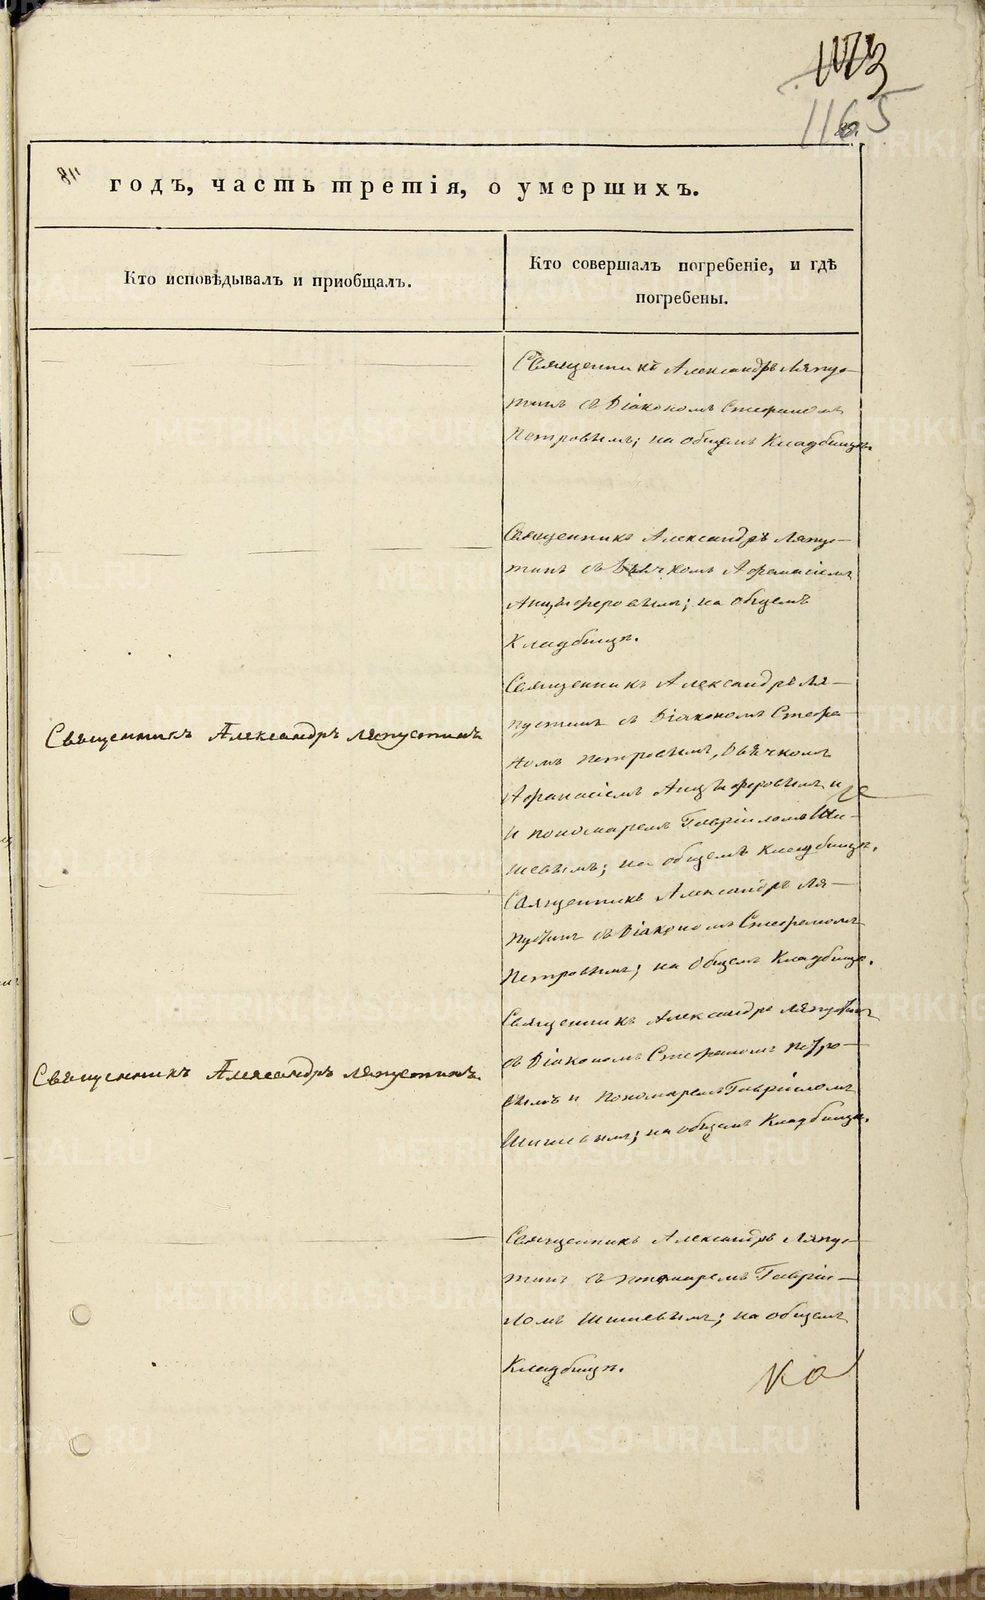 1165
годъ, часть третія, о умершихъ.
Кто исповѣдывалъ и приобщалъ.
Кто совершалъ погребеніе, и гдѣ
погребены.
Священникъ Александръ Ляпу-
стинъ съ Діакономъ Стефаномъ
Петровымъ; на общемъ Кладбищѣ.
Священникъ Александръ Ляпу-
стинъ съ Дьячкомъ Афанасіемъ
Анцыферовымъ; на общемъ
Кладбищѣ.
Священникъ Александръ Ляпустинъ
Священникъ Александръ Ля-
пустинъ съ Діакономъ Стефа-
номъ Петровымъ, Дьячкомъ
Афанасіемъ Анцыферовымъ и
и пономаремъ Гавріиломъ Ши-
шевымъ; на общемъ кладбищѣ.
Священникъ Александръ Ля-
пустинъ съ Діакономъ Стефаномъ
Петровымъ; на общемъ Кладбищѣ.
Священникъ Александръ Ляпустинъ
Священникъ Александръ Ляпустинъ
съ Діакономъ Стефаномъ Петро-
вымъ и Пономаремъ Гавріиломъ
Шишевымъ; на общемъ Кладбищѣ.
Священникъ Александръ Ляпу-
стинъ съ пономаремъ Гавріи-
ломъ Шишевымъ; на общемъ
Кладбищѣ.
METRIKI.GASO-URAL.RU